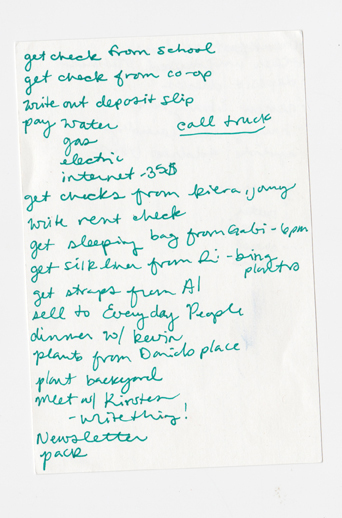 get check from school
get check from co-op
write out deposit slip
pay water
call truck
gas
electric
internet - 35$
get checks from kiera, jamy
write rent check
get sleeping bag from Gabi - 6pm
get silk liner from Ri - bring
plantro
get straps from Al
sell to Everyday People
dinner w/ kevin
plants from Danido place
plant backyard
meet w/ Kirsten
- write thing!
Newsletter
pack